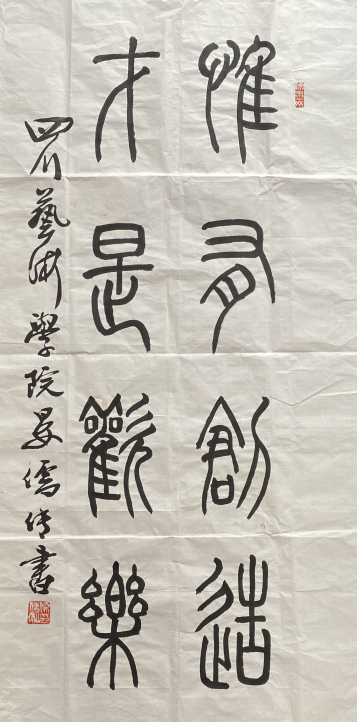 惟有創造
才是歡樂
四川藝術學院晏儒傳書